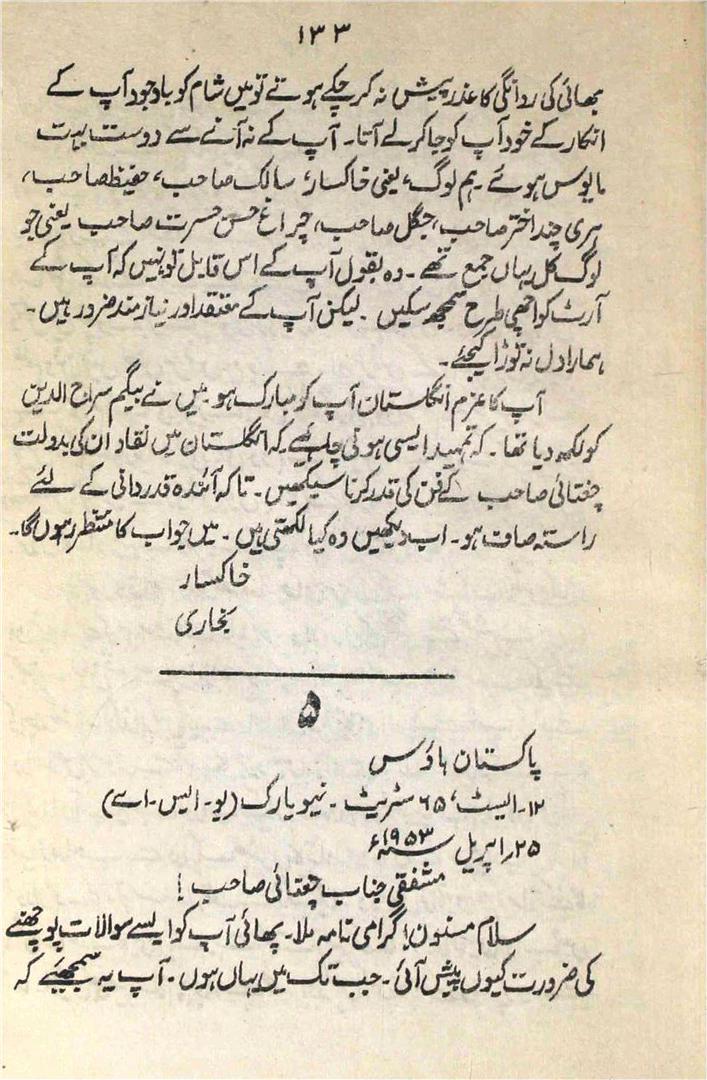 ۱۳۳
بھائی کی روانگی کا عذر پیش نہ کر چکے ہوتے تو میں شام کو باوجود آپ کے
انکار کے خود آپ کو جا کر لے آتا۔ آپ کے نہ آنے سے دوست بہت
مایوس ہوئے۔ ہم لوگ، یعنی خاکسار، سالک صاحب، حفیظ صاحب،
ہری چند اختر صاحب، جگل صاحب، چراغ حسن حسرت صاحب یعنی جو
لوگ کل یہاں جمع تھے۔ وہ بقول آپ کے اس قابل تو نہیں کہ آپ کے
آرٹ کو اچھی طرح سمجھ سکیں۔ لیکن آپ کے معتقد اور نیاز مند ضرور ہیں۔
ہمارا دل نہ توڑا کیجئے۔
آپ کا عزم انگلستان آپ کو مبارک ہو میں نے بیگم سراج الدین
کو لکھ دیا تھا۔ کہ تمہید ایسی ہونی چاہیے کہ انگلستان میں نقاد ان کی بدولت
چغتائی صاحب کے فن کی قدر کرنا سیکھیں۔ تاکہ آئندہ قدردانی کے لئے
راستہ صاف ہو۔ اب دیکھیں وہ کیا لکھتی ہیں۔ میں جواب کا منتظر رہوں گا۔
خاکسار
بخاری
۵
پاکستان ہاؤس
۱۲۔ ایسٹ، ۶۵ سٹریٹ۔ نیویارک (یو۔ ایس۔ اے)
۲۵ اپریل ۱۹۵۳ء
مشفقی جناب چغتائی صاحب!
سلام مسنون! گرامی نامہ ملا۔ بھائی آپ کو ایسے سوالات پوچھنے
کی ضرورت کیوں پیش آئی۔ جب تک میں یہاں ہوں۔ آپ یہ سمجھیے کہ